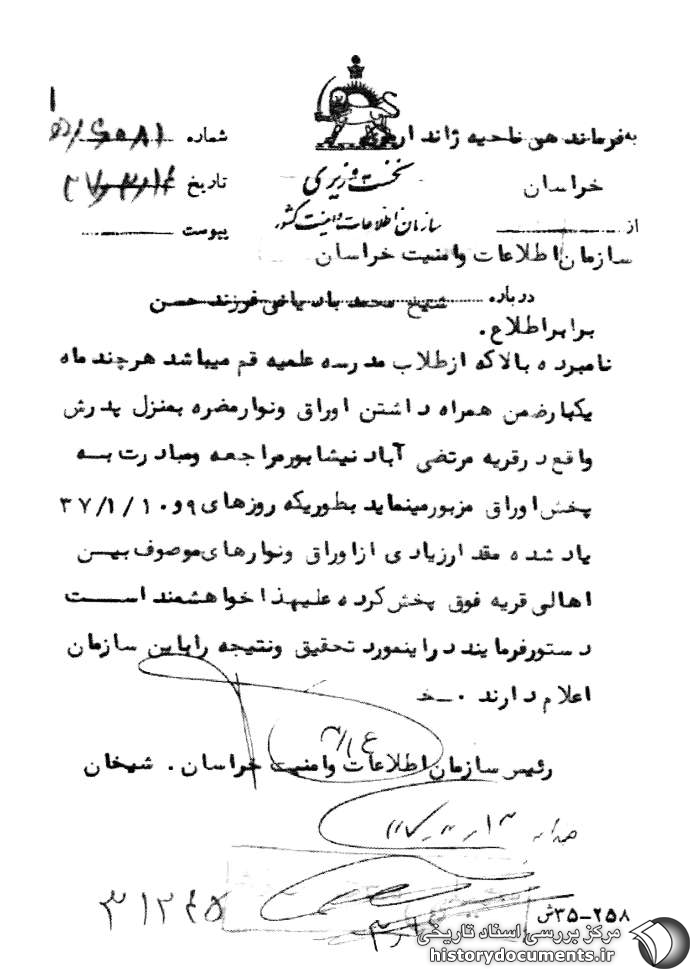 به فرماندهی ناحیه ژاندارمری
خراسان
نخست وزیری
سازمان اطلاعات و امنیت کشور
شماره
تاریخ
پیوست
از
سازمان اطلاعات وامنیت خراسان
درباره شیخ محمد بادیاخی فرزند حسن
برابراطلاع.
نامبرده بالاکه ازطلاب مدرسه علمیه قم میباشد هرچند ماه
یکبارضمن همراه داشتن اوراق ونوارمضره بمنزل پدرش
واقع درقریه مرتضی آباد نیشابورمراجعه ومبادرت بــه
پخش اوراق مزبورمینماید بطوریکه روزهای ۹و۳۷/۱/۱۰
یادشده مقدارزیادی ازاوراق ونوارهای موصوف بیــن
اهالی قریه فوق پخش کرده علیهذا خواهشمند اســـت
دستورفرمایند دراینمورد تحقیق ونتیجه رابایــن سازمان
اعلام دارند ۰ـخ
رئیس سازمان اطلاعات وامنیت خراسان. شیخان
۳۱۲۴۵
۲۵۸-۳۵ش
مرکز بررسی اسناد تاریخی
historydocuments.ir